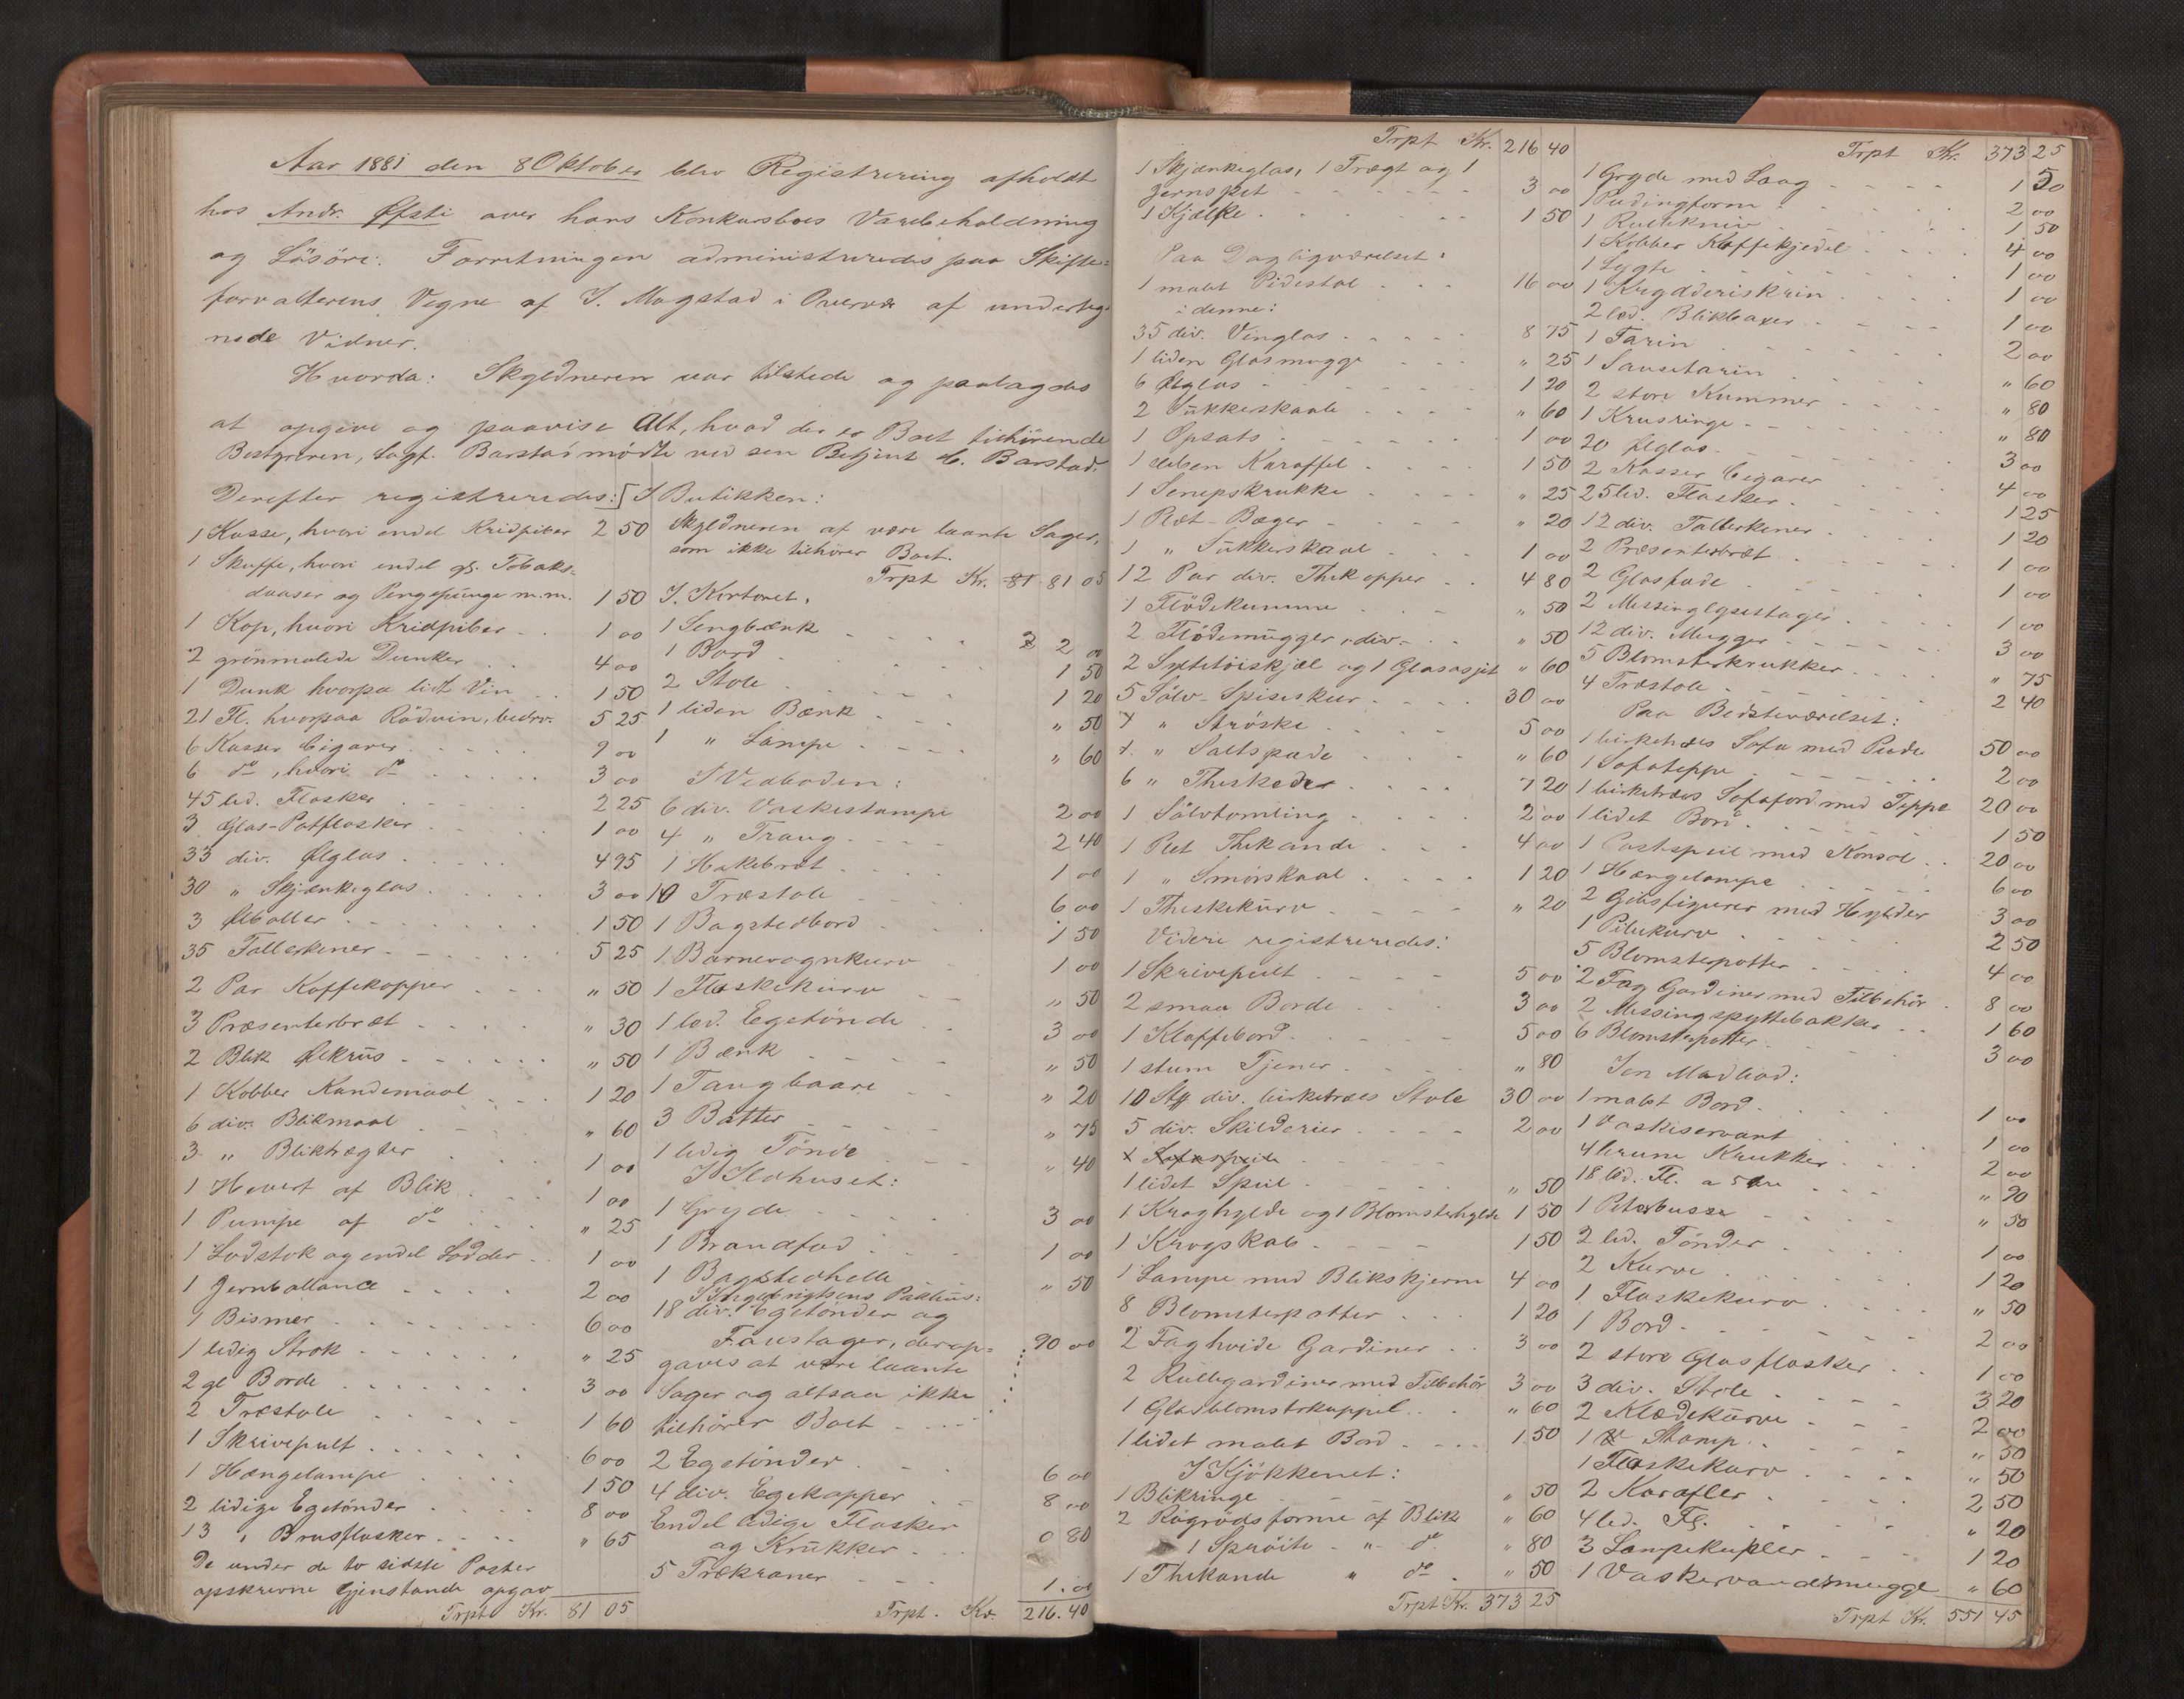 Aar 1881 den 8 Oktober blev Registrering afholdt
hos Andr. Øfsti over hans Konkursboes Varebeholdning
og Løsøre. Forretningen administreredes paa Skifte=
forvalterens Vegne af I. Mogstad i Overvær af underteg=
nede Vidner.
Hvorda: Skyldneren var tilstede og paalagdes
at opgive og paavise Alt, hvad der er Boet tilhørende
Bestyreren, Sagf. Barstad mødte ved sen Betjent H. Barstad.
Derefter registreredes: [I Butikken:
1 Kasse, hvori endel Kridpiber 2 50
1 Skuffe, hvori endel gl. Tobaks-
daaser og Pengepunge m.m. 1 50
1 Kop, hvori Kridpiber 1 00
2 grønmalede Dunker 4 00
1 Dunk hvorpaa lidt Vin 1 50
21 Fl. hvorpaa Rødvin, bedrv. 5 25
6 Kasser Cigarer 9 00
6 do, hvori do 3 00
45 led. Flasker 2 25
3 Glas-Potflasker 1 00
33 div. Ølglas 4 95
30 " Skjænkeglas 3 00
3 Ølboller 1 50
35 Tallerkener 5 25
2 Par Kaffekopper " 50
3 Præsenterbræt " 30
2 Blik Ølkrus " 50
1 Kobber Kandemaal 1 20
6 div. Blikmaal " 60
3 " Bliktrægter 1 00
1 Hævert af Blik 1 00
1 Pumpe af do " 25
1 Lodstok og endel Lodder 1 00
1 Jernballance 2 00
1 Bismer 6 00
1 ledig Strok " 25
2 gl Borde 3 00
2 Træstole 1 60
1 Skrivepult 6 00
1 Hængelampe 1 50
2 ledige Egetønder 8 00
13 " Brusflasker " 65
De under de to sidste Poster
opskrevne Gjenstande opgav
Trpt Kr. 81 05
Skyldneren at være laante Sager,
som ikke tilhører Boet.
Trpt Kr. 81 81 05
I Kontoret.
1 Sengbænk 2 2 00
1 Bord 1 50
2 Stole 1 20
1 liden Bænk " 50
1 " Lampe " 60
I Vedboden:
6 div. Vaskestampe 2 00
4 " Traug 2 40
1 Hakkebræt 1 00
10 Træstole 6 00
1 Bagstedbord 1 50
1 Barnevognkurv 1 00
1 Flaskekurv " 50
1 led. Egetønde 3 00
1 Bænk " 50
1 Tangbaare " 20
3 Bøtter " 75
1 ledig Tønde " 40
I Ildhuset:
1 Gryde 3 00
1 Brandfad 1 00
1 Bagstedhelle " 50
I Pakhus:
18 div. Egetønder og
Faustager, der op=
gaves at være laante
Sager og altsaa ikke
tilhører Boet 90 00
2 Egetønder 6 00
4 div. Egekopper 8 00
Endel ledige Flasker
og Krukker 0 80
5 Trækraner 1.00
Trpt. Kr. 216.40
Trpt Kr. 216 40
1 Skjænkeglas, 1 Trægt og 1
Jernspet 3 00
1 Kjælke 1 50
Paa Dagligværelset:
1 malet Pidestal 16 00
i denne:
35 div. Vinglas 8 75
1 liden Glasmugge " 25
6 Ølglas 1 20
2 Sukkeskaale " 60
1 Opsats 1 00
1 sleben Karaffel 1 50
1 Senepskrukke " 25
1 Plet-Bæger " 20
1 " Sukkerskaal 1 00
12 Par div. Thekopper 4 80
1 Flødekumme " 50
2 Flødemugger, div. " 50
2 Syltetøiskjæl og 1 Glasasjet " 60
5 Sølv-Spiseskeer 30 00
1 " Strøske 5 00
1 " Saltspade " 60
6 " Theskeder 7 20
1 Sølvtomling 2 00
1 Plet Thekande 4 00
1 " Smørskaal 1 20
1 Theskekurv " 20
Videre registreredes:
1 Skrivepult 5 00
2 smaa Borde 3 00
1 Klaffebord 5 00
1 stum Tjener " 80
10 Stk div. birketræes Stole 30 00
5 div. Skilderier 2 00
1 lidet Speil " 50
1 Kroghylde og 1 Blomsterhylde 1 50
1 Krogskab 1 50
1 Lampe med Blikskjerm 4 00
8 Blomsterpotter 1 20
2 Fag hvide Gardiner 3 00
2 Rullegardiner med Tilbehør 3 00
1 Glasblomsterkuppel " 60
1 lidet malet Bord 1 50
I Kjøkkenet:
1 Blikringe " 50
2 Røgrødsforme af Blik " 60
1 Sprøite " do " 80
1 Thekande " do " 50
Trpt Kr. 373 25
Trpt Kr. 373 25
1 Gryde med Laag 1 50
1 Pudingform 2 00
1 Rullekniv 1 50
1 Kobber Kaffekjedel 4 00
1 Lygte 1 00
1 Krydderiskrin 1 00
2 led. Blikbaxer 1 00
1 Tarin 2 00
1 Sausetarin " 60
2 store Kummer " 80
1 Krusringe " 80
20 Ølglas 3 00
2 Kasser Cigarer 4 00
25 led. Flasker 1 25
12 div. Tallerkener 1 20
2 Præsenterbræt 1 00
2 Glasfade 1 00
2 Messinglysestager 1 00
12 div. Mugger 3 00
5 Blomsterkrukker " 75
4 Træstole 2 40
Paa Bedsteværelset:
1 birketræes Sofa med Pude 50 00
1 Sofateppe 2 00
1 birketræes Sofabord med Teppe 20 00
1 lidet Bord 1 50
1 Postspeil med Konsol 20 00
1 Hængelampe 6 00
2 Gibsfigurer med Hylder 3 00
1 Pilekurv 2 50
5 Blomsterpotter 4 00
2 Fag Gardiner med Tilbehør 8 00
2 Messingspyttebakker 1 60
6 Blomsterpotter 3 00
I en Madbod:
1 malet Bord 1 00
1 Vaskeservant 1 00
4 brune Krukker 2 00
18 led. Fl. a 5 øre " 90
1 Peberbusse " 50
2 led. Tønder 1 00
2 Kurve 1 20
1 Flaskekurv " 50
1 Bord 2 00
2 store Glasflasker 1 00
3 div. Stole 3 20
2 Klædekurve 2 00
1 Stamp " 50
1 Flaskekurv " 50
2 Karafler 2 50
4 led. Fl. " 20
3 Lampekupler 1 20
1 Vaskevandsmugge " 60
Trpt Kr. 551 45